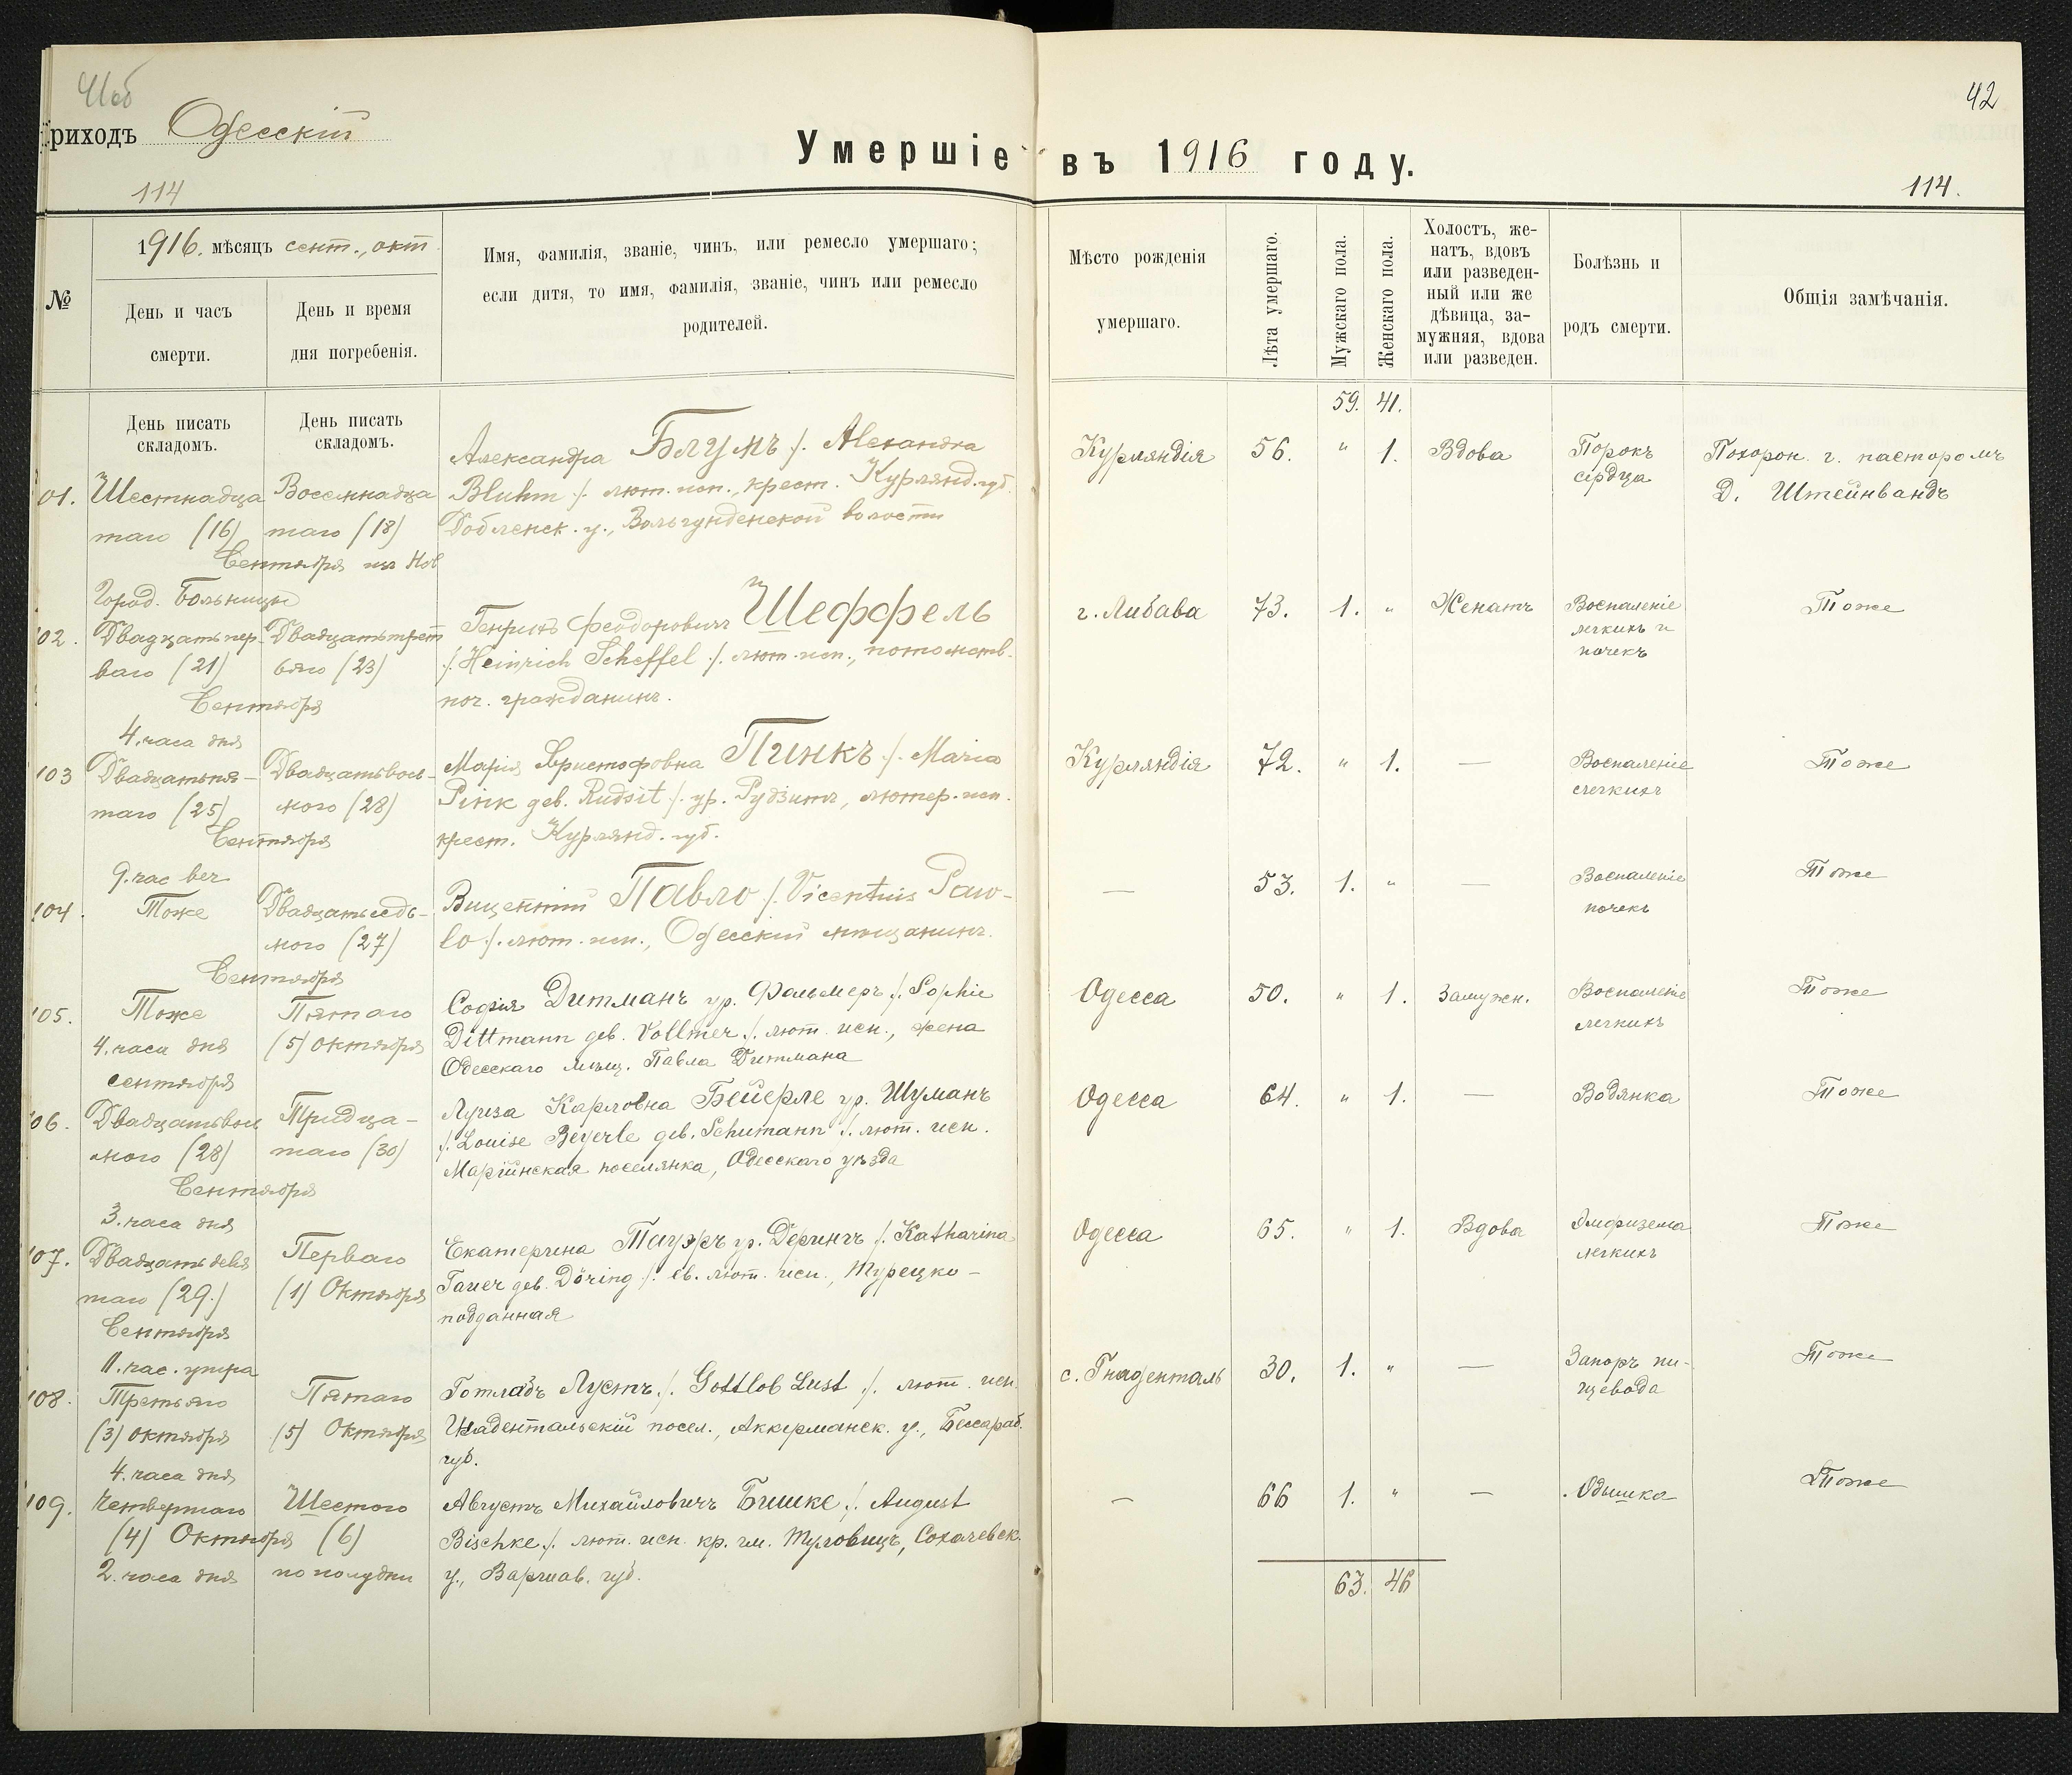 41об
Приходъ Одесскій
Умершіе въ 1916 году.
42
114
114.
№
1916. мѣсяцъ сент., окт
День и часъ
смерти.
День и время
дня погребенія.
Имя, фамилія, званіе, чинъ, или ремесло умершаго;
если дитя, то имя, фамилія, званіе, чинъ или ремесло
родителей.
Мѣсто рожденія
умершаго.
Лѣта умершаго.
Мужскаго пола.
Женскаго пола.
Холостъ, же-
натъ, вдовъ
или разведен-
ный или же
дѣвица, за-
мужняя, вдова
или разведен.
Болѣзнь и
родъ смерти.
Общія замѣчанія.
День писать
складомъ.
День писать
складомъ.
59. 41.
01.
Шестнадца
таго (16)
Восемнадца
таго (18)
Сентября
Город. Больницы
Александра Блумъ ./. Alexandra
Bluhm ./. лют. исп., крест. Курлянд. губ.
Добленск. у., Вольгунденской волости
Курляндія
56.
" 1.
Вдова
Порокъ
сердца
Похорон. г. пасторомъ
Д. Штейнвандъ
02.
Двадцать пер-
ваго (21)
Двадцать трет
ьяго (23)
Сентября
4. часа дня
Генрихъ Феодоровичъ Шеффель
./. Heinrich Scheffel ./. лют. исп., потомств.
поч. гражданинъ.
г. Либава
73.
1. "
Женатъ
Воспаленіе
легкихъ и
почекъ
Тоже
103
Двадцать пя-
таго (25)
Двадцать вось-
мого (28)
Сентября
9. час веч
Марія Христофовна Пинкъ ./. Maria
Pink geb. Rudsit ./. ур. Рудзитъ, лютер. исп.
крест. Курлянд. губ.
Курляндія
72.
" 1.
—
Воспаленіе
легкихъ
Тоже
104.
Тоже
Двадцать седь-
мого (27)
Сентября
Вицентій Павло ./. Vicentius Paw-
lo ./. лют. исп., Одесскій мѣщанинъ.
—
53.
1. "
—
Воспаленіе
почекъ
Тоже
105.
Тоже
4. часа дня
сентября
Пятаго
(5) октября
Софія Дитманъ ур. Фольмеръ ./. Sophie
Dittmann geb. Vollmer ./. лют. исп., жена
Одесскаго мѣщ. Павла Дитмана
Одесса
50.
" 1.
Замужн.
Воспаленіе
легкихъ
Тоже
06.
Двадцать вось
мого (28)
Тридца-
таго (30)
Сентября
3. часа дня
Луиза Карловна Бейерле ур. Шуманъ
./. Louise Beyerle geb. Schumann ./. лют. исп.
Маріинская поселянка, Одесскаго уѣзда
Одесса
64.
" 1.
—
Водянка
Тоже
107.
Двадцать девя
таго (29.)
Сентября
11. час. утра
Перваго
(1) Октября
Екатерина Тауэръ ур. Дерингъ ./. Katharina
Tauer geb. Döring ./. ев. лют. исп., Турецко-
подданная
Одесса
65.
" 1.
Вдова
Эмфизема
легкихъ
Тоже
108.
Третьяго
(3) октября
4. часа дня
Пятаго
(5) Октября
Готлабъ Лустъ ./. Gottlob Lust ./. лют. исп.
Гнадентальскій посел., Аккерманск. у., Бессараб.
губ.
с. Гнаденталь
30.
1. "
—
Запоръ пи-
щевода
Тоже
109.
Четвертаго
Шестого
(4) Октября (6)
2. часа дня
по полудни
Августъ Михайловичъ Бишке ./. August
Bischke ./. лют. исп. кр. гм. Туловицъ, Сохачевск.
у., Варшав. губ.
—
66
1. "
—
Одышка
Тоже
63. 46